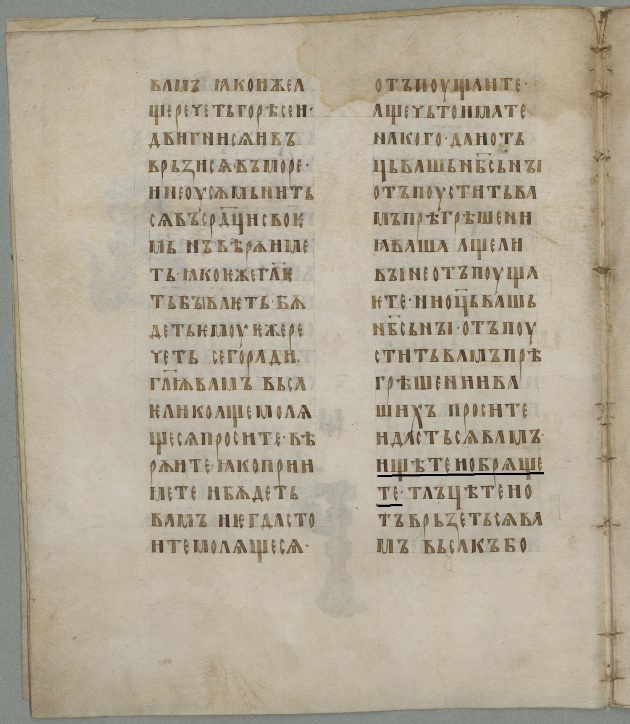 вамъ ꙗко иже а
щеречетьгорѣсеи·
двигнисѧивъ
врьꙁисѧ·въморе·
инеоусѫмьнить
сѧвъсрд҃цисвоѥ
мь нъвѣрѫиме
ть·ꙗкоижегл҃ѥ
тьбываѥть·бѫ
детьѥмоуѥжере
четь сегоради.
гл҃ѭвамъ вьса
ѥликоащемолѧ
щесѧпросите·вѣ
рѫите·ꙗкоприи
мете ибѫдеть
вамъ иѥгдасто
итемолѧщесѧ·
отъпоущаите·
ащечьтоимате
накого·даиоть
ць вашь нб҃сьнꙑ
отъпоуститьва
мъпрѣгрѣшени
ꙗваша ащели
вꙑнеотъпоуща
ѥте·ниоц҃ьвашь
нб҃сьнꙑ·отъпоу
ститьвамъпрѣ
грѣшенииваа
шихъ просите
идастьсѧвамъ·
ищѣтеиобрѧще
те·тлъцѣтеио
тъврьꙁетьсѧва
мъ вьсакъбо